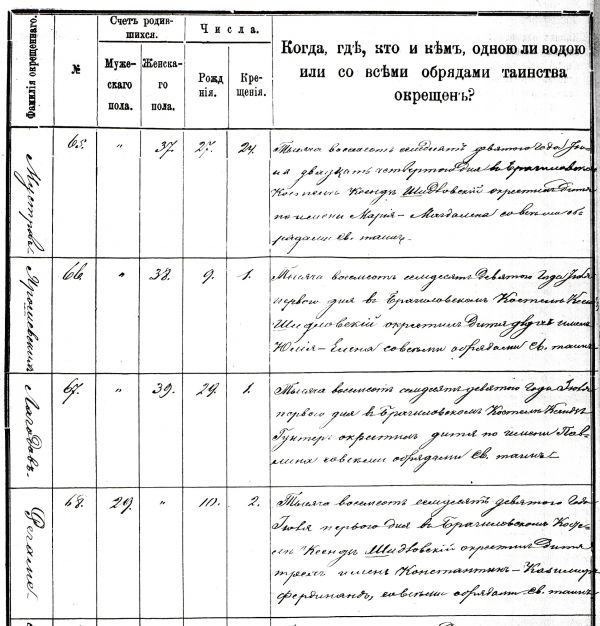 Фамилія окрещеннаго.
№
Счетъ родив-
шихся.
Муже-
скаго
пола.
Женска-
го
пола.
Числа.
Рожд
нія.
Кре-
щенія.
Когда, гдѣ, кто и кѣмъ, одною ли водою
или со всѣми обрядами таинства
окрещенъ?
65. " 37. 27. 24.
Тысяча восемсотъ семдесятъ девятого года
двадцать четвертого дня в
Костелѣ Ксендзъ окрестилъ дитя
по имени Марія-Магдалена со всѣми об-
рядами Св. таинъ
Ярошевскихъ
66. " 38. 9. 1.
Тысяча восемсотъ семдесятъ девятого года Іюля
первого дня в Брагиловскомъ Костелѣ
окрестилъ дитя двухъ именъ
Юлія-Елена со всѣми обрядами Св. таинъ
Лагодовъ
67. " 39. 29. 1.
Тысяча восемсотъ семдесятъ девятого года Іюля
первого дня в Брагиловскомъ Костелѣ Ксендзъ
Гунтеръ окрестилъ дитя по имени Пав-
лина со всѣми обрядами Св. таинъ
68. 29. " 10. 2.
Тысяча восемсотъ семдесятъ девятого года
Іюля первого дня в Брагиловскомъ Косте-
лѣ Ксендзъ окрестилъ дитя
трехъ именъ Константинъ-Казимиръ
Фердинандъ, со всѣми обрядами Св. таинъ